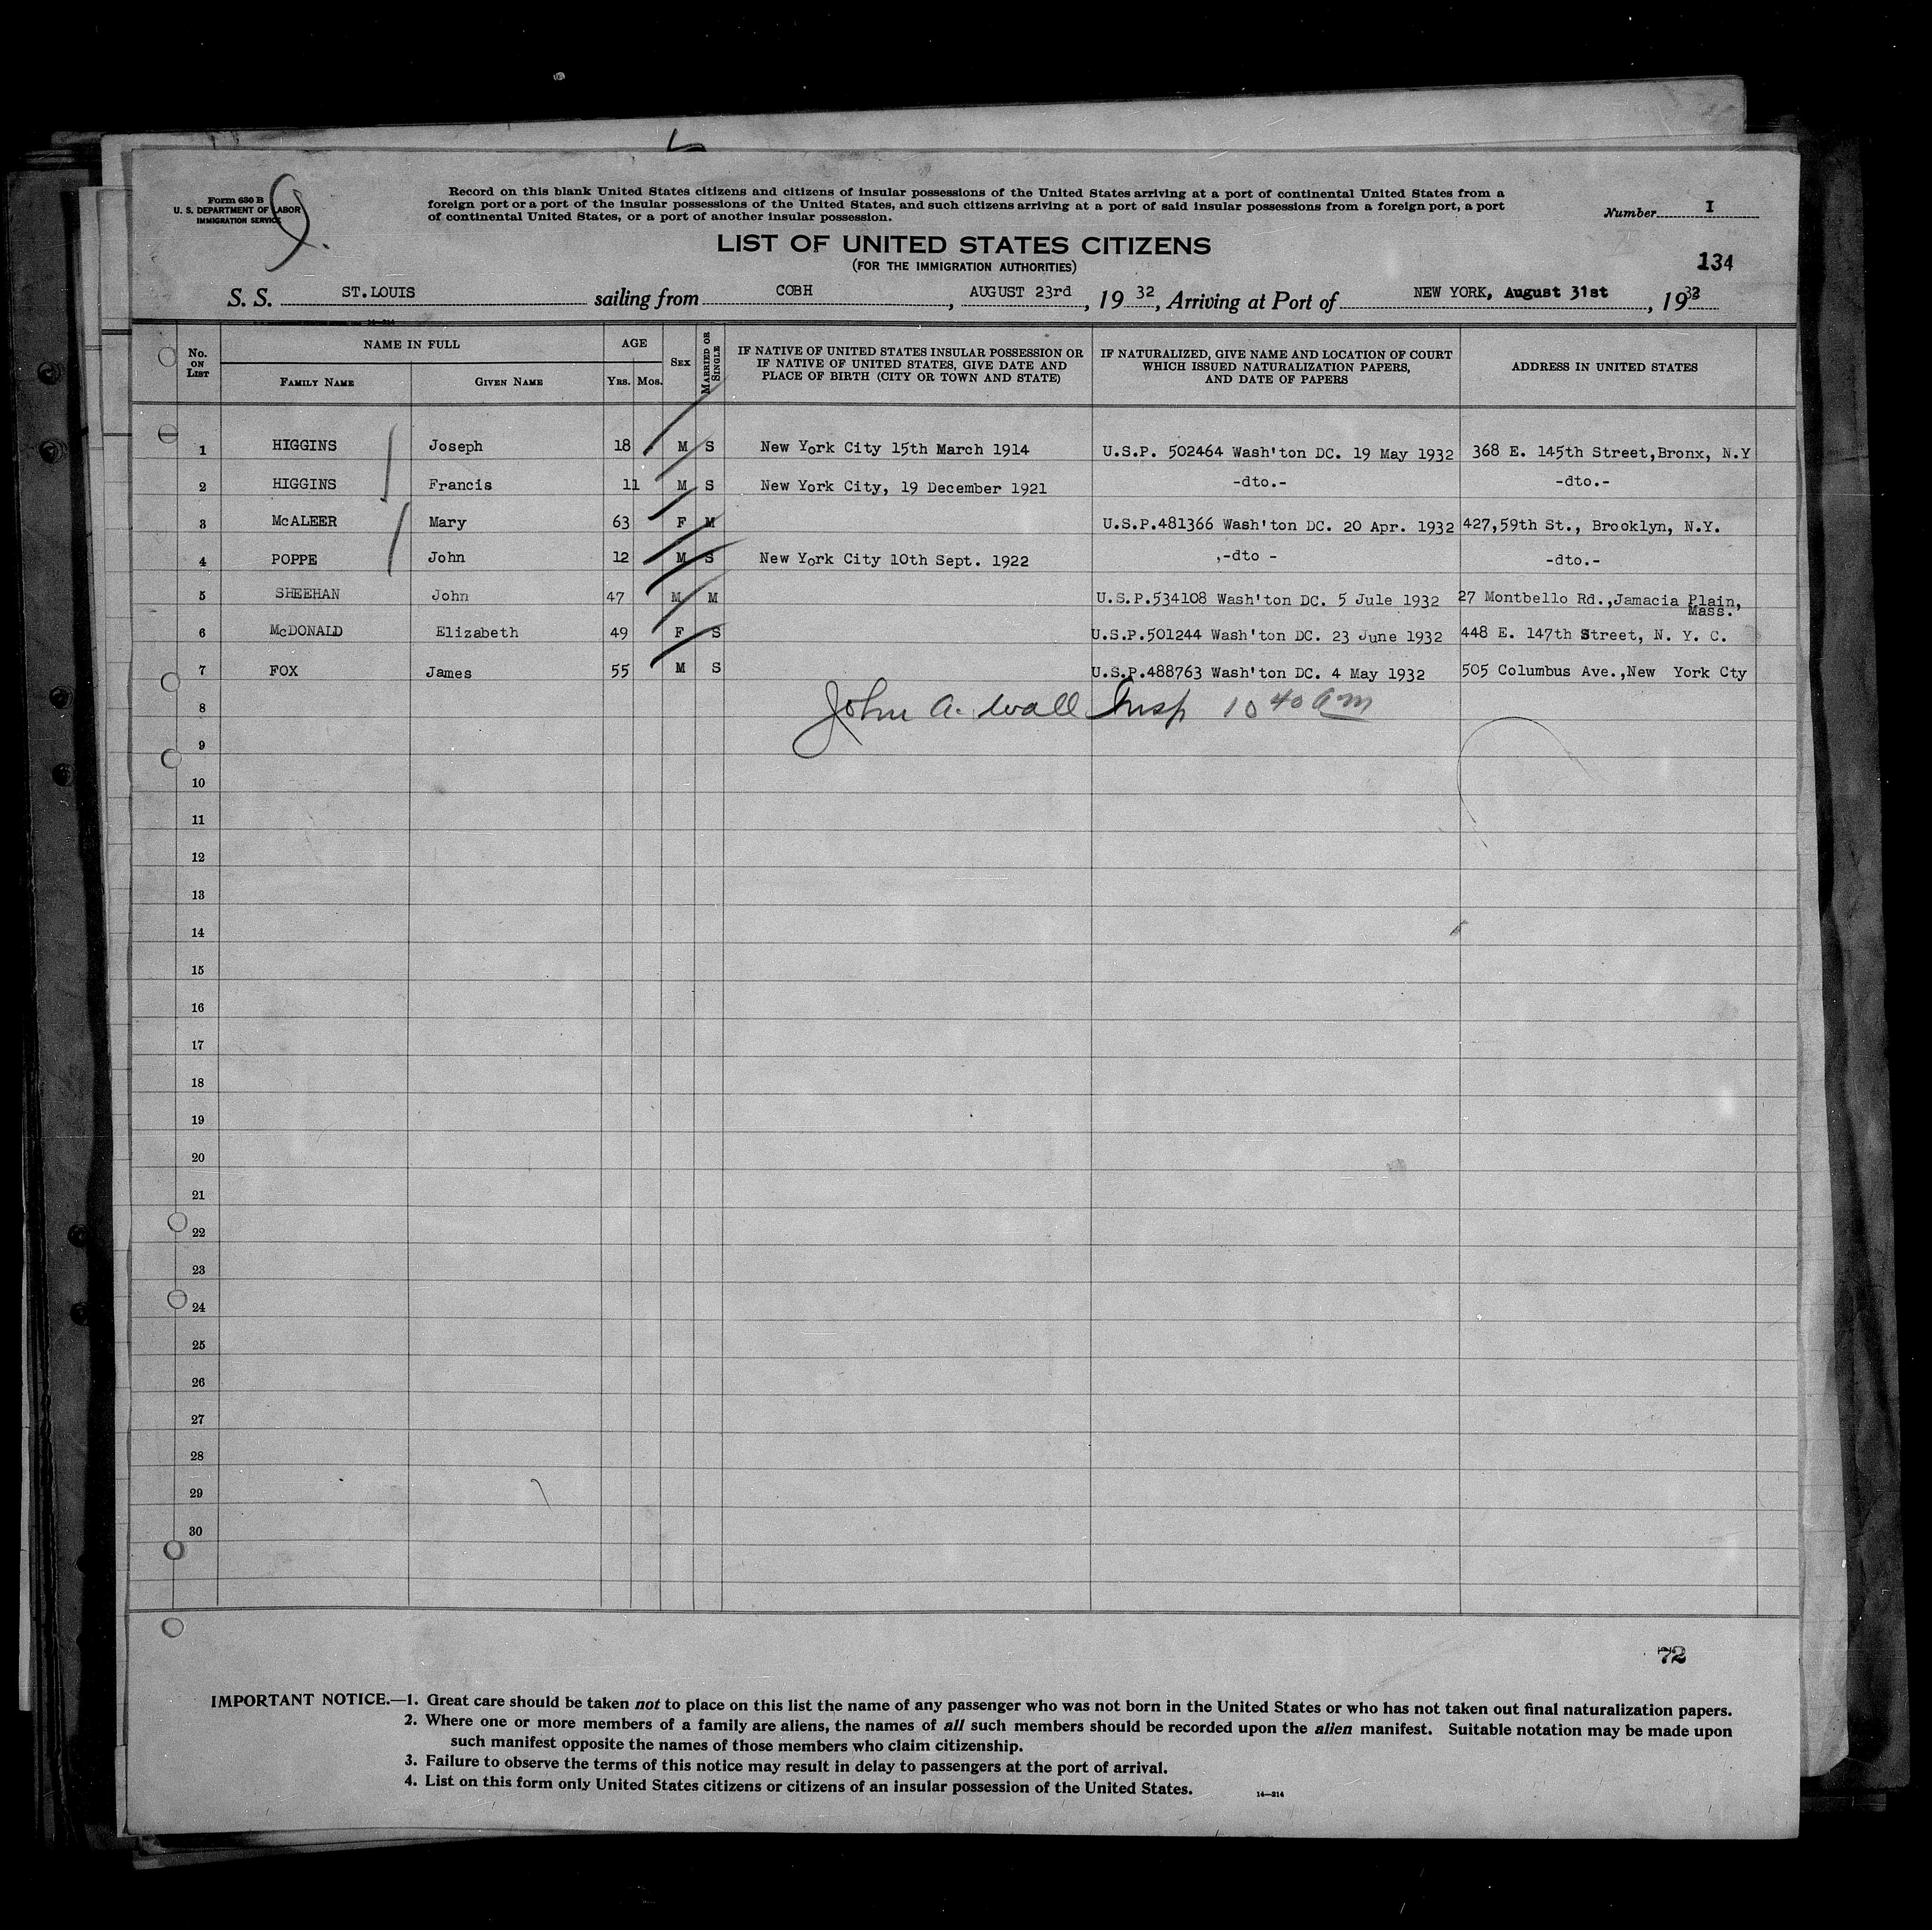 Form 630 B
U. S. DEPARTMENT OF LABOR
IMMIGRATION SERVICE
Record on this blank United States citizens and citizens of insular possessions of the United States arriving at a port of continental United States from a
foreign port or a port of the insular possessions of the United States, and such citizens arriving at a port of said insular possessions from a foreign port, a port
of continental United States, or a port of another insular possession.
Number I
LIST OF UNITED STATES CITIZENS
(FOR THE IMMIGRATION AUTHORITIES)
134
S. S. ST.LOUIS sailing from COBH, AUGUST 23rd, 19 32, Arriving at Port of NEW YORK, August 31st, 19 32
14—214
No. ON LIST
NAME IN FULL
FAMILY NAME
GIVEN NAME
AGE
YRS. MOS.
SEX
MARRIED OR SINGLE
IF NATIVE OF UNITED STATES INSULAR POSSESSION OR
IF NATIVE OF UNITED STATES, GIVE DATE AND
PLACE OF BIRTH (CITY OR TOWN AND STATE)
IF NATURALIZED, GIVE NAME AND LOCATION OF COURT
WHICH ISSUED NATURALIZATION PAPERS,
AND DATE OF PAPERS
ADDRESS IN UNITED STATES
1 HIGGINS Joseph 18 M S New York City 15th March 1914 U.S.P. 502464 Wash'ton DC. 19 May 1932 368 E. 145th Street,Bronx, N.Y
2 HIGGINS Francis 11 M S New York City, 19 December 1921 -dto.- -dto.-
3 McALEER Mary 63 F M U.S.P.481366 Wash'ton DC. 20 Apr. 1932 427,59th St., Brooklyn, N.Y.
4 POPPE John 12 M S New York City 10th Sept. 1922 ,-dto - -dto.-
5 SHEEHAN John 47 M M U.S.P.534108 Wash'ton DC. 5 Jule 1932 27 Montbello Rd.,Jamacia Plain,
Mass.
6 McDONALD Elizabeth 49 F S U.S.P.501244 Wash'ton DC. 23 June 1932 448 E. 147th Street, N. Y. C.
7 FOX James 55 M S U.S.P.488763 Wash'ton DC. 4 May 1932 505 Columbus Ave.,New York Cty
8 John A. Wall Insp 10 40 am
9
10
11
12
13
14
15
16
17
18
19
20
21
22
23
24
25
26
27
28
29
30
72
IMPORTANT NOTICE.—1. Great care should be taken not to place on this list the name of any passenger who was not born in the United States or who has not taken out final naturalization papers.
2. Where one or more members of a family are aliens, the names of all such members should be recorded upon the alien manifest. Suitable notation may be made upon
such manifest opposite the names of those members who claim citizenship.
3. Failure to observe the terms of this notice may result in delay to passengers at the port of arrival.
4. List on this form only United States citizens or citizens of an insular possession of the United States.
14—214